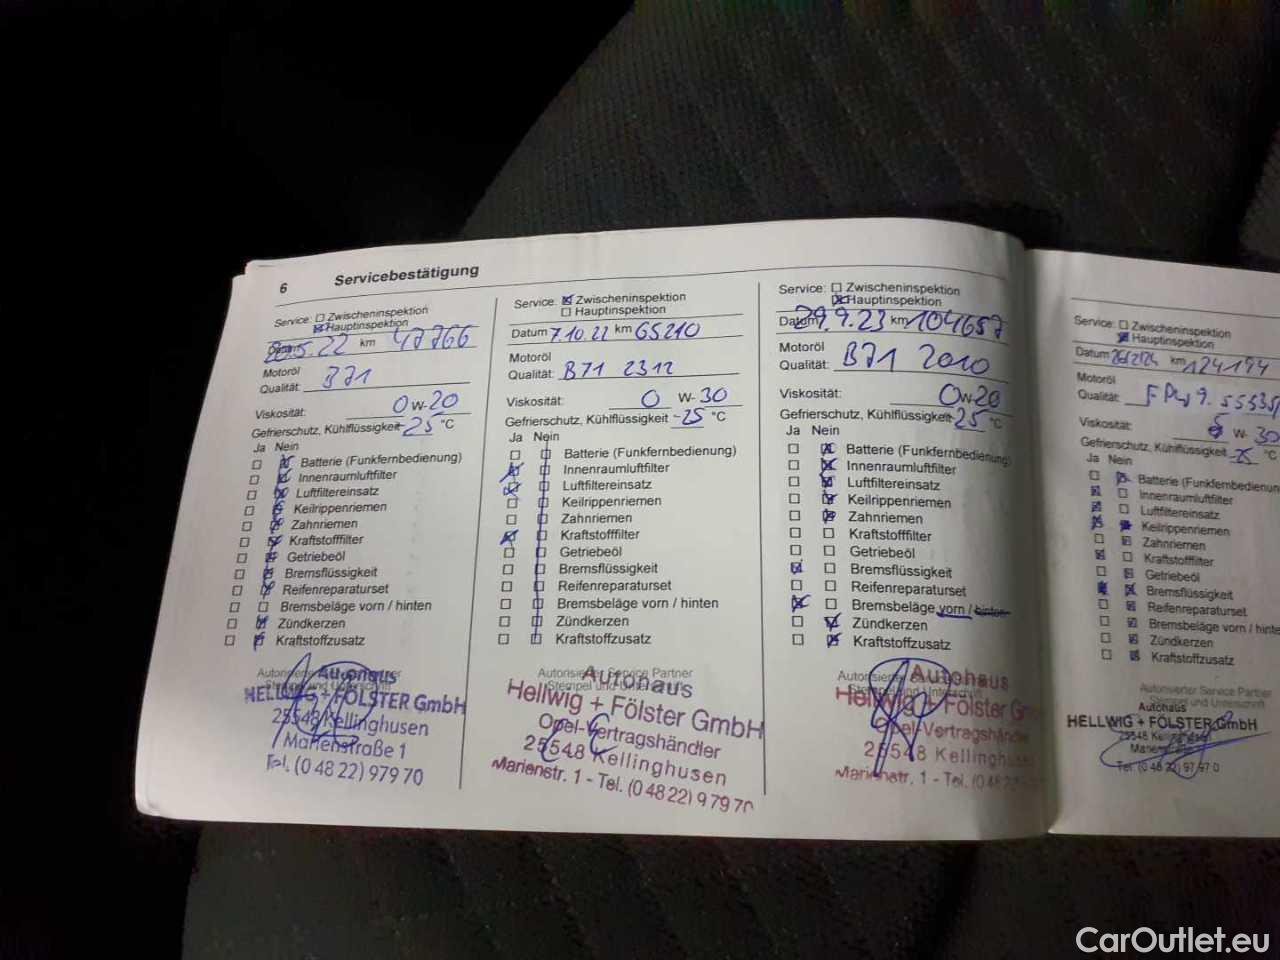 6 Servicebestätigung
Service: Zwischeninspektion
Hauptinspektion
Datum 5.22 km 47766
Motoröl
Qualität: B71
Viskosität: 0 W-20
Gefrierschutz, Kühlflüssigkeit -25 °C
Ja Nein
Batterie (Funkfernbedienung)
Innenraumluftfilter
Luftfiltereinsatz
Keilrippenriemen
Zahnriemen
Kraftstofffilter
Getriebeöl
Bremsflüssigkeit
Reifenreparaturset
Bremsbeläge vorn / hinten
Zündkerzen
Kraftstoffzusatz
Autorisierter Service Partner
Stempel und Unterschrift
Autohaus
HELLWIG + FÖLSTER GmbH
25548 Kellinghusen
Marienstraße 1
Tel. (0 48 22) 979 70
Service: Zwischeninspektion
Hauptinspektion
Datum 7.10.22 km 65210
Motoröl
Qualität: B71 2312
Viskosität: 0 W-30
Gefrierschutz, Kühlflüssigkeit -25 °C
Ja Nein
Batterie (Funkfernbedienung)
Innenraumluftfilter
Luftfiltereinsatz
Keilrippenriemen
Zahnriemen
Kraftstofffilter
Getriebeöl
Bremsflüssigkeit
Reifenreparaturset
Bremsbeläge vorn / hinten
Zündkerzen
Kraftstoffzusatz
Autorisierter Service Partner
Stempel und Unterschrift
Autohaus
Hellwig + Fölster GmbH
Opel-Vertragshändler
25548 Kellinghusen
Marienstr. 1 - Tel. (0 48 22) 9 79 70
Service: Zwischeninspektion
Hauptinspektion
Datum 29.9.23 km 104657
Motoröl
Qualität: B71 2010
Viskosität: 0 W-20
Gefrierschutz, Kühlflüssigkeit -25 °C
Ja Nein
Batterie (Funkfernbedienung)
Innenraumluftfilter
Luftfiltereinsatz
Keilrippenriemen
Zahnriemen
Kraftstofffilter
Getriebeöl
Bremsflüssigkeit
Reifenreparaturset
Bremsbeläge vorn / hinten
Zündkerzen
Kraftstoffzusatz
Autorisierter Service Partner
Stempel und Unterschrift
Autohaus
Hellwig + Fölster Gm
Opel-Vertragshändler
25548 Kellinghusen
Marienstr. 1 - Tel. (0 48 22
Service: Zwischeninspektion
Hauptinspektion
Datum km 124194
Motoröl
Qualität:
Viskosität: W- 30
Gefrierschutz, Kühlflüssigkeit -25 °C
Ja Nein
Batterie (Funkfernbedienun
Innenraumluftfilter
Luftfiltereinsatz
Keilrippenriemen
Zahnriemen
Kraftstofffilter
Getriebeöl
Bremsflüssigkeit
Reifenreparaturset
Bremsbeläge vorn / hinte
Zündkerzen
Kraftstoffzusatz
Autorisierter Service Partner
Stempel und Unterschrift
Autohaus
HELLWIG + FÖLSTER GmbH
25548 Kellinghusen
Marienstraße 1
Tel. (0 48 22) 97 97 0
CarOutlet.eu